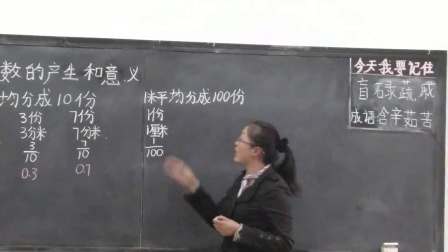 数的产生和意义
均分成10份
3份 7份
3分米 7分米
3/10 7/10
0.3 0.7
1米平均分成100份
1份
1厘米
1/100
今天我要记住
盲碌蔬咸
成语含辛茹苦